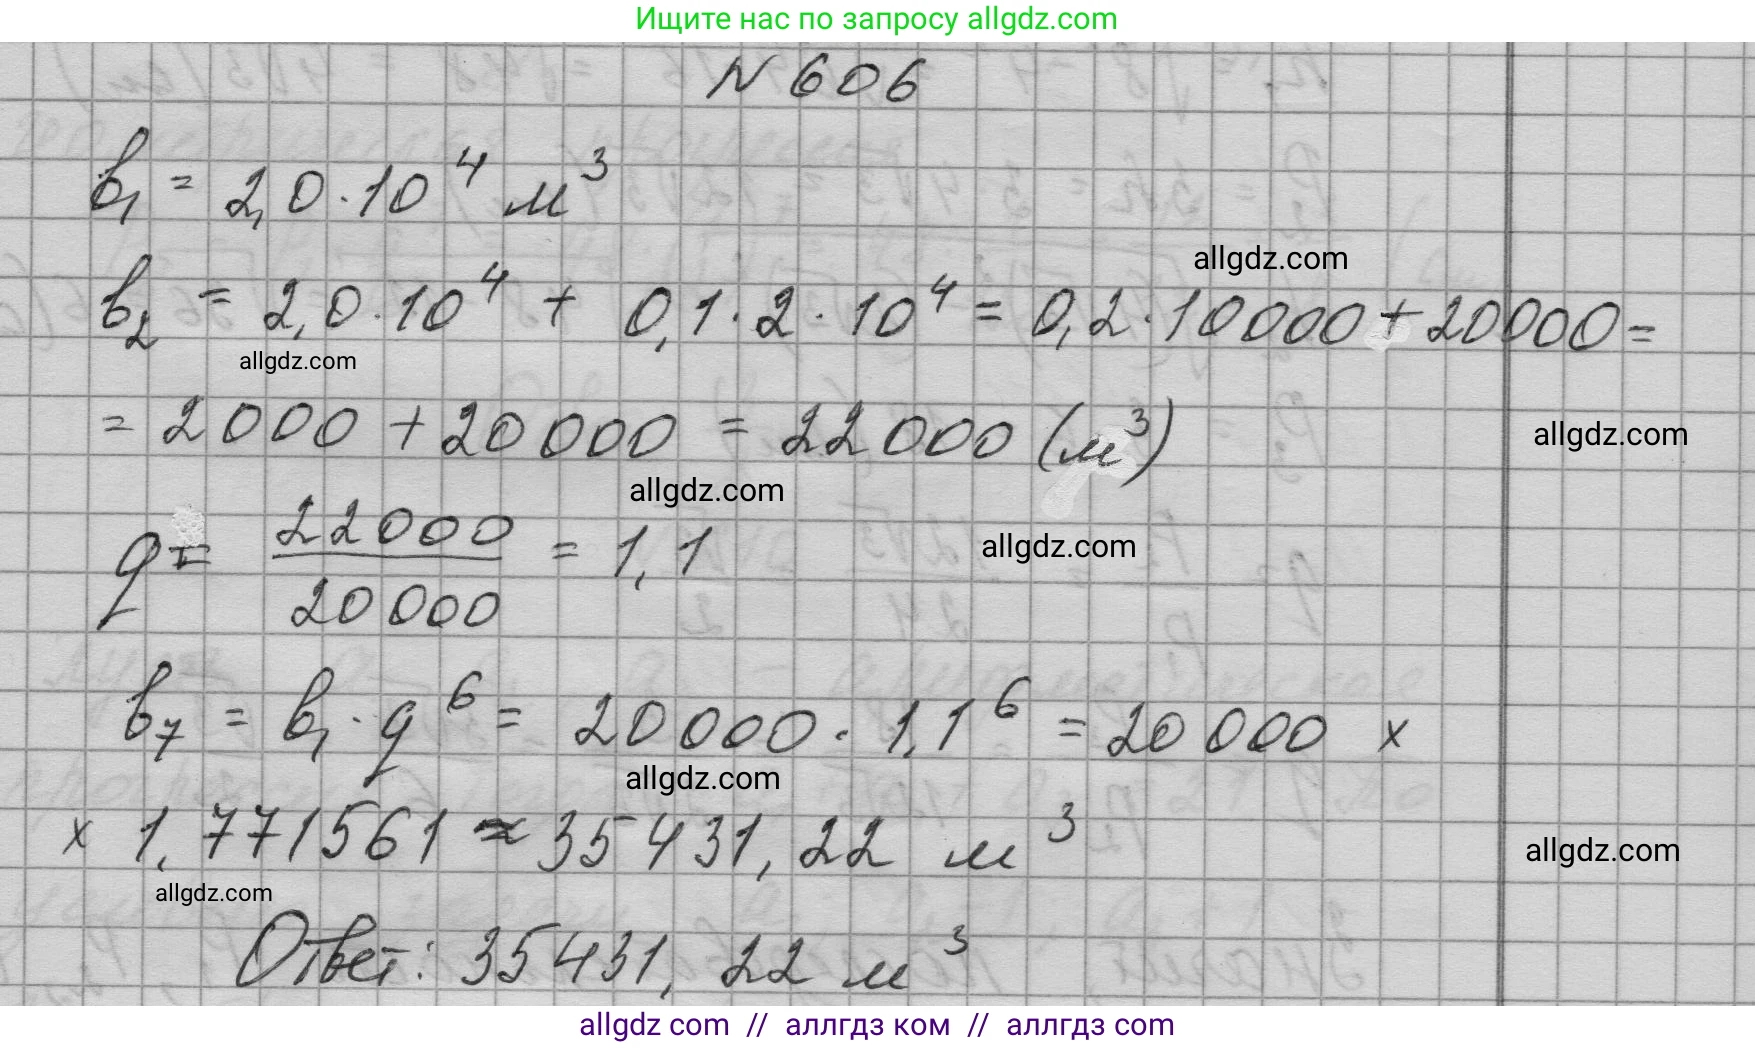 Ищите нас по запросу allgdz.com
№ 606
b₁ = 2,0 · 10⁴ м³
allgdz.com
b₂ = 2,0 · 10⁴ + 0,1 · 2 · 10⁴ = 0,2 · 10000 + 20000 =
allgdz.com
= 2000 + 20000 = 22000 (м³)
allgdz.com
allgdz.com
allgdz.com
q = 22000 / 20000 = 1,1
b₇ = b₁ · q⁶ = 20000 · 1,1⁶ = 20000 ×
allgdz.com
× 1,771561 ≈ 35431,22 м³
allgdz.com
allgdz.com
Ответ: 35431,22 м³
allgdz com // аллгдз ком // аллгдз com